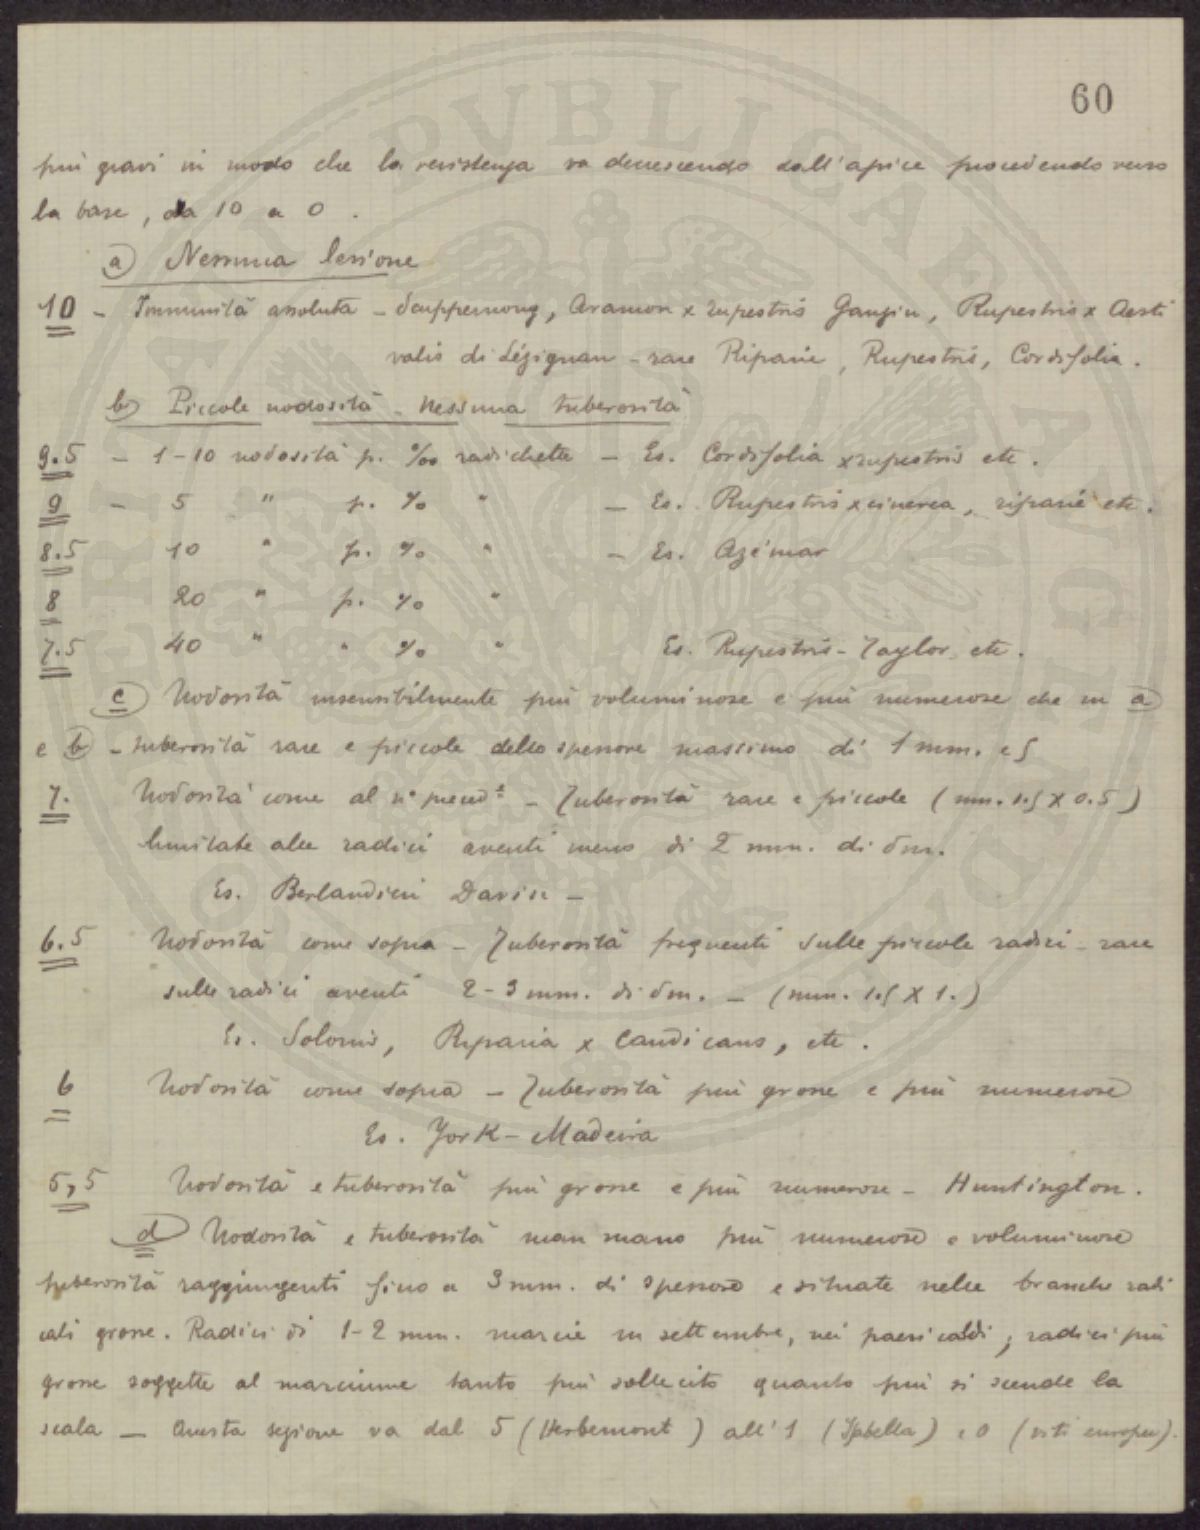 60
più gravi in modo che la resistenza va decrescendo dall'apice procedendo verso
la base, da 10 a 0.
a) Nessuna lesione
10 - Immunità assoluta - Scuppernong, Aramon x rupestris Ganzin, Rupestris x Aesti
valis di Lézignan - rare Riparie, Rupestris, Cordifolia.
b) Piccole nodosità - Nessuna tuberosità
9.5 - 1-10 nodosità p. ‰ radichette - Es. Cordifolia x rupestris etc.
9 - 5 " p. % " - Es. Rupestris x cinerea, riparie etc.
8.5 10 " p. % " - Es. Azémar
8 20 " p. % "
7.5 40 " " % " Es. Rupestris - Taylor, etc.
c) Nodosità insensibilmente più voluminose e più numerose che in a)
e b) - tuberosità rare e piccole dello spessore massimo di 1 mm. e 5
7. Nodosità come al n° preced.e - Tuberosità rare e piccole (mm. 1.5 x 0.5)
limitate alle radici aventi meno di 2 mm. di dm.
Es. Berlandieri Davin -
6.5 Nodosità come sopra - Tuberosità frequenti sulle piccole radici - rare
sulle radici aventi 2-3 mm. di dm. - (mm. 1.5 x 1.)
Es. Solonis, Riparia x Candicans, etc.
6 Nodosità come sopra - Tuberosità più grosse e più numerose
Es. York - Madeira
5,5 Nodosità e tuberosità più grosse e più numerose - Huntington.
d) Nodosità e tuberosità man mano più numerose e voluminose
tuberosità raggiungenti fino a 3 mm. di spessore e situate nelle branche radi
cali grosse. Radici di 1-2 mm. marcie in settembre, nei paesi caldi; radici più
grosse soggette al marciume tanto più sollecito quanto più si scende la
scala - Questa sezione va dal 5 (Herbemont) all'1 (Isabella) e 0 (viti europee).